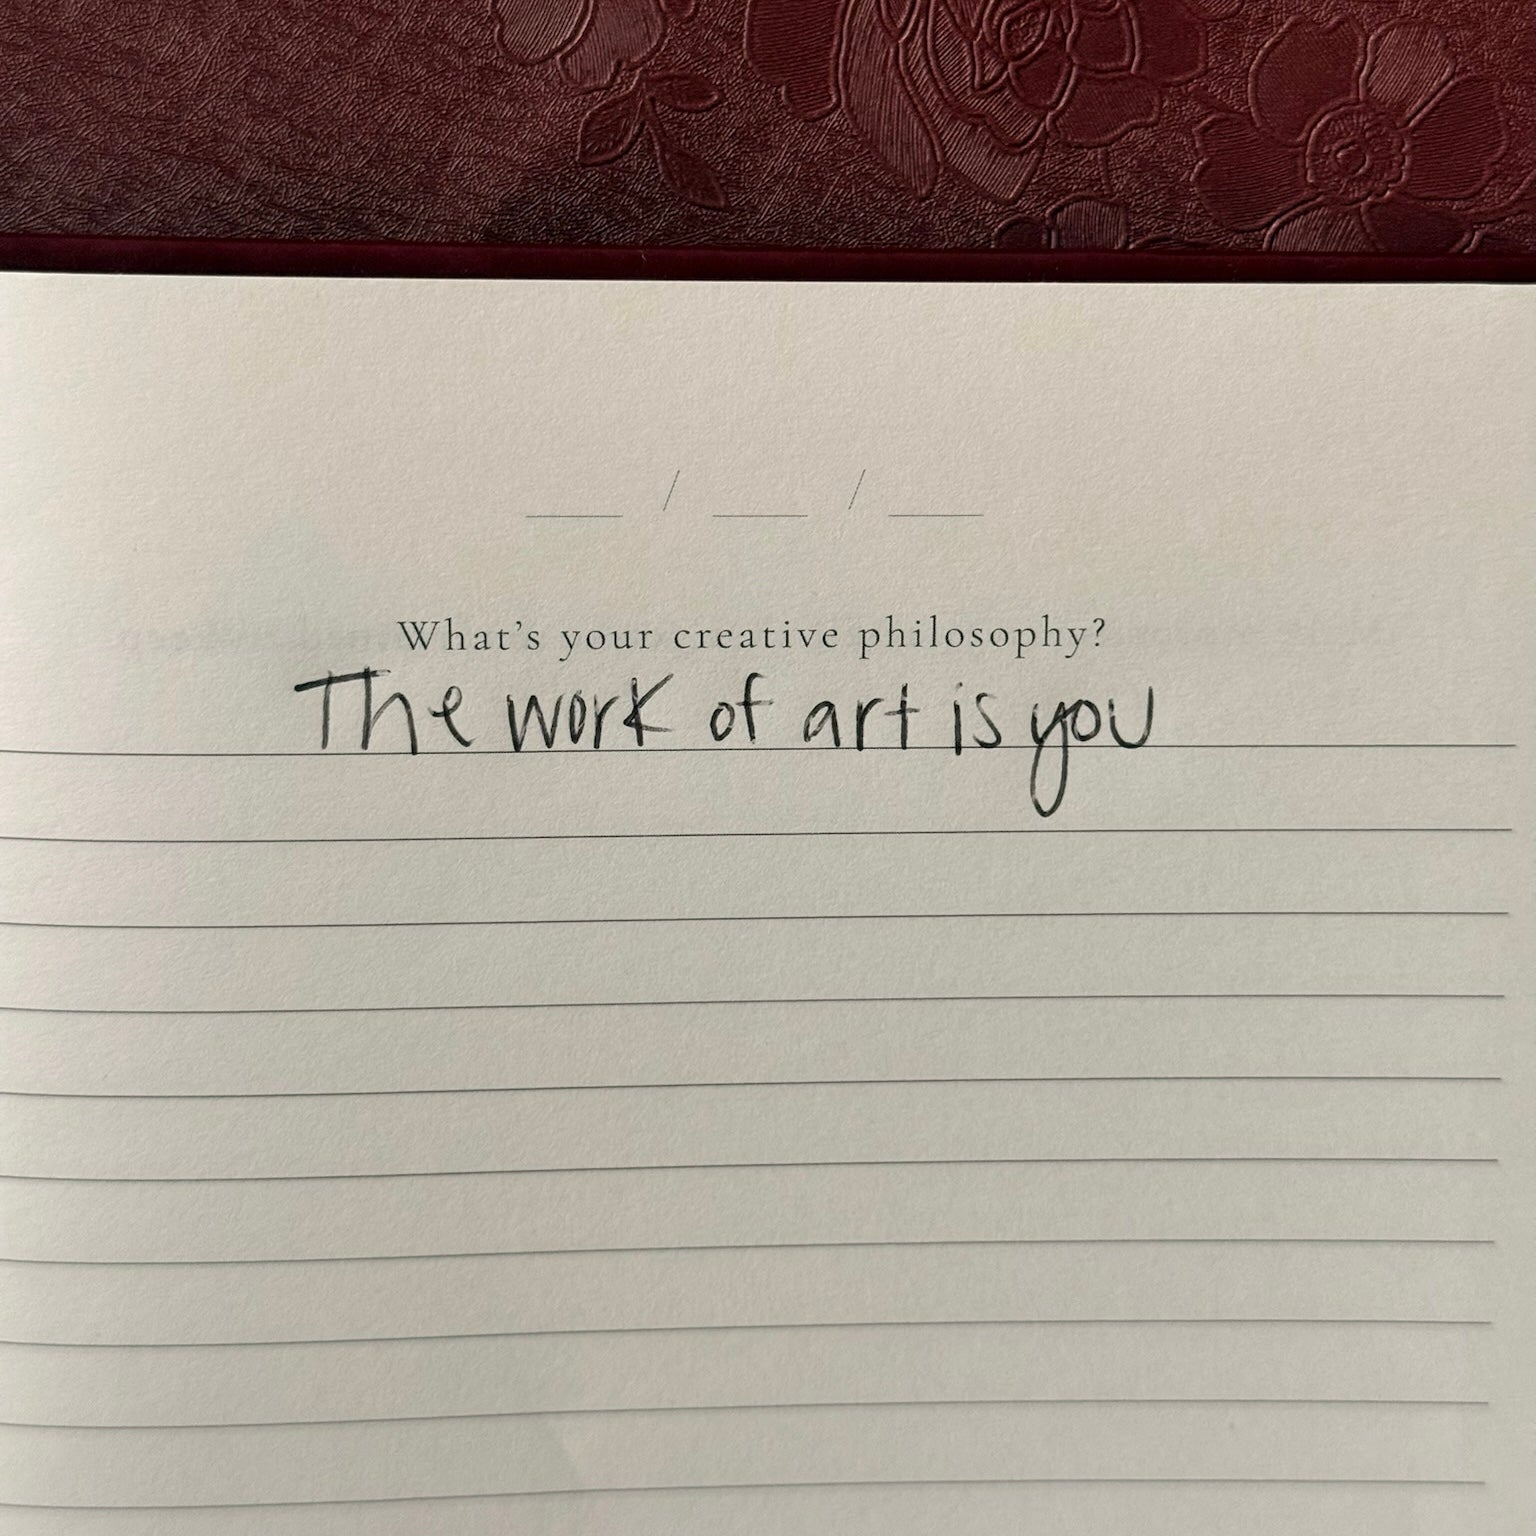 ___ / ___ / ___
What's your creative philosophy?
The work of art is you